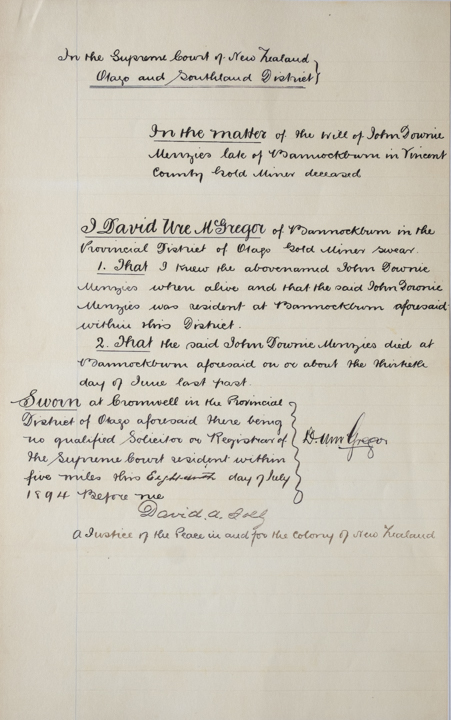 In the Supreme Court of New Zealand
Otago and Southland District
In the matter of the Will of John Downie
Menzies late of Bannockburn in Vincent
County Gold Miner deceased
I David Ure McGregor of Bannockburn in the
Provincial District of Otago Gold Miner swear.
1. That I knew the abovenamed John Downie
Menzies when alive and that the said John Downie
Menzies was resident at Bannockburn aforesaid
within this District.
2. That the said John Downie Menzies died at
Bannockburn aforesaid on or about the thirtieth
day of June last past.
Sworn at Cromwell in the Provincial
District of Otago aforesaid there being
no qualified Solicitor or Registrar of
the Supreme Court resident within
five miles this day of July
1894 Before me
David. A.
A Justice of the Peace in and for the Colony of New Zealand